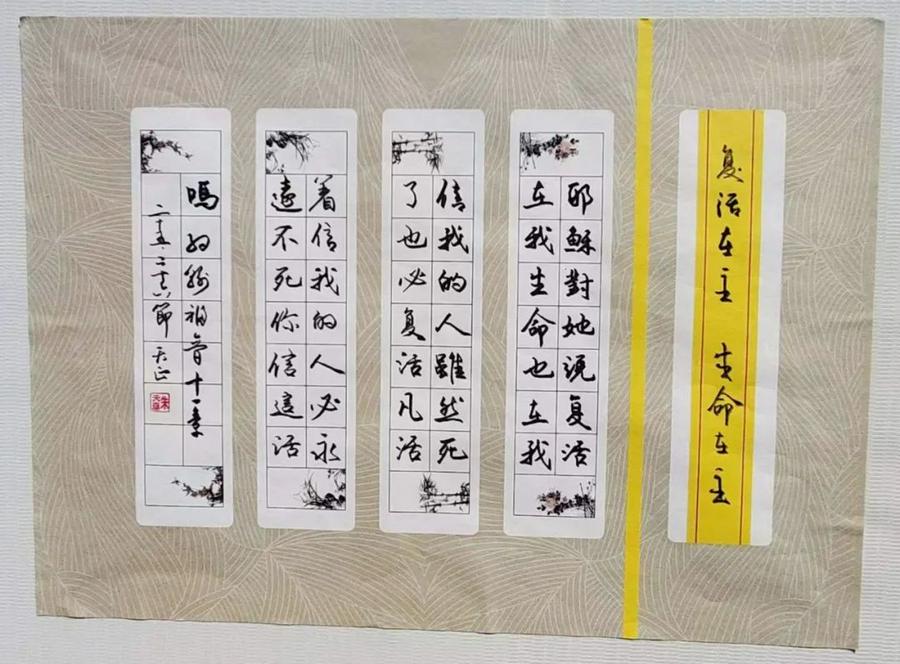 复活在主 生命在主
耶穌對她說复活
在我生命也在我
信我的人雖然死
了也必复活凡活
着信我的人必永
遠不死你信這话
嗎 约翰福音十一章
二十五.二十六節 天正
朱天正